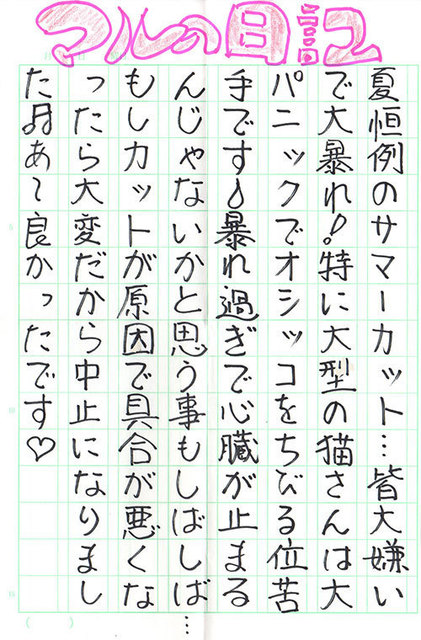 マルの日記
夏恒例のサマーカット…皆大嫌い
で大暴れ!特に大型の猫さんは大
パニックでオシッコをちびる位苦
手です暴れ過ぎで心臓が止まる
んじゃないかと思う事もしばしば…
もしカットが原因で具合が悪くな
ったら大変だから中止になりまし
た♫あ~良かったです♡